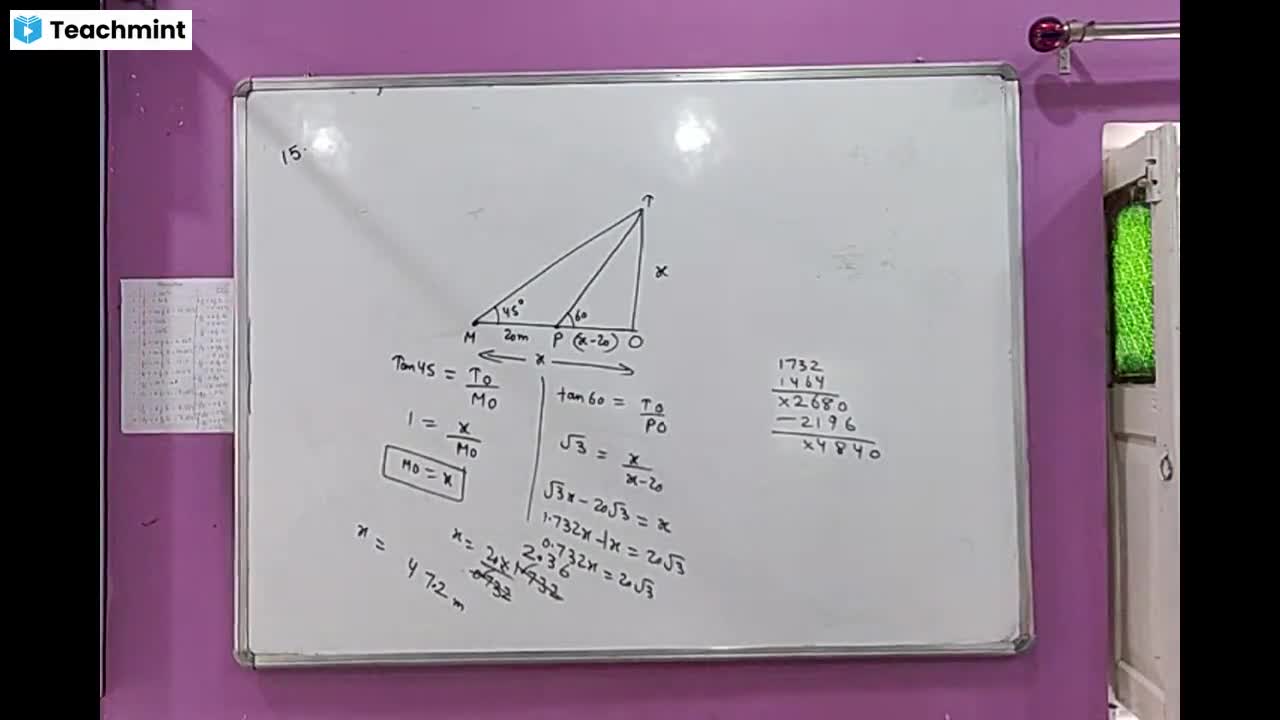 Teachmint
15.
T
x
45°
60
M
20m
P
(x-20)
O
x
Tan45 = TO/MO
1 = x/MO
MO = x
tan60 = TO/PO
√3 = x/x-20
√3x - 20√3 = x
1.732x - 1x = 20√3
0.732x = 20√3
x = 20 x 1.732/0.732
2.36
x = 47.2 m
1732
1464
x2680
-2196
x4840